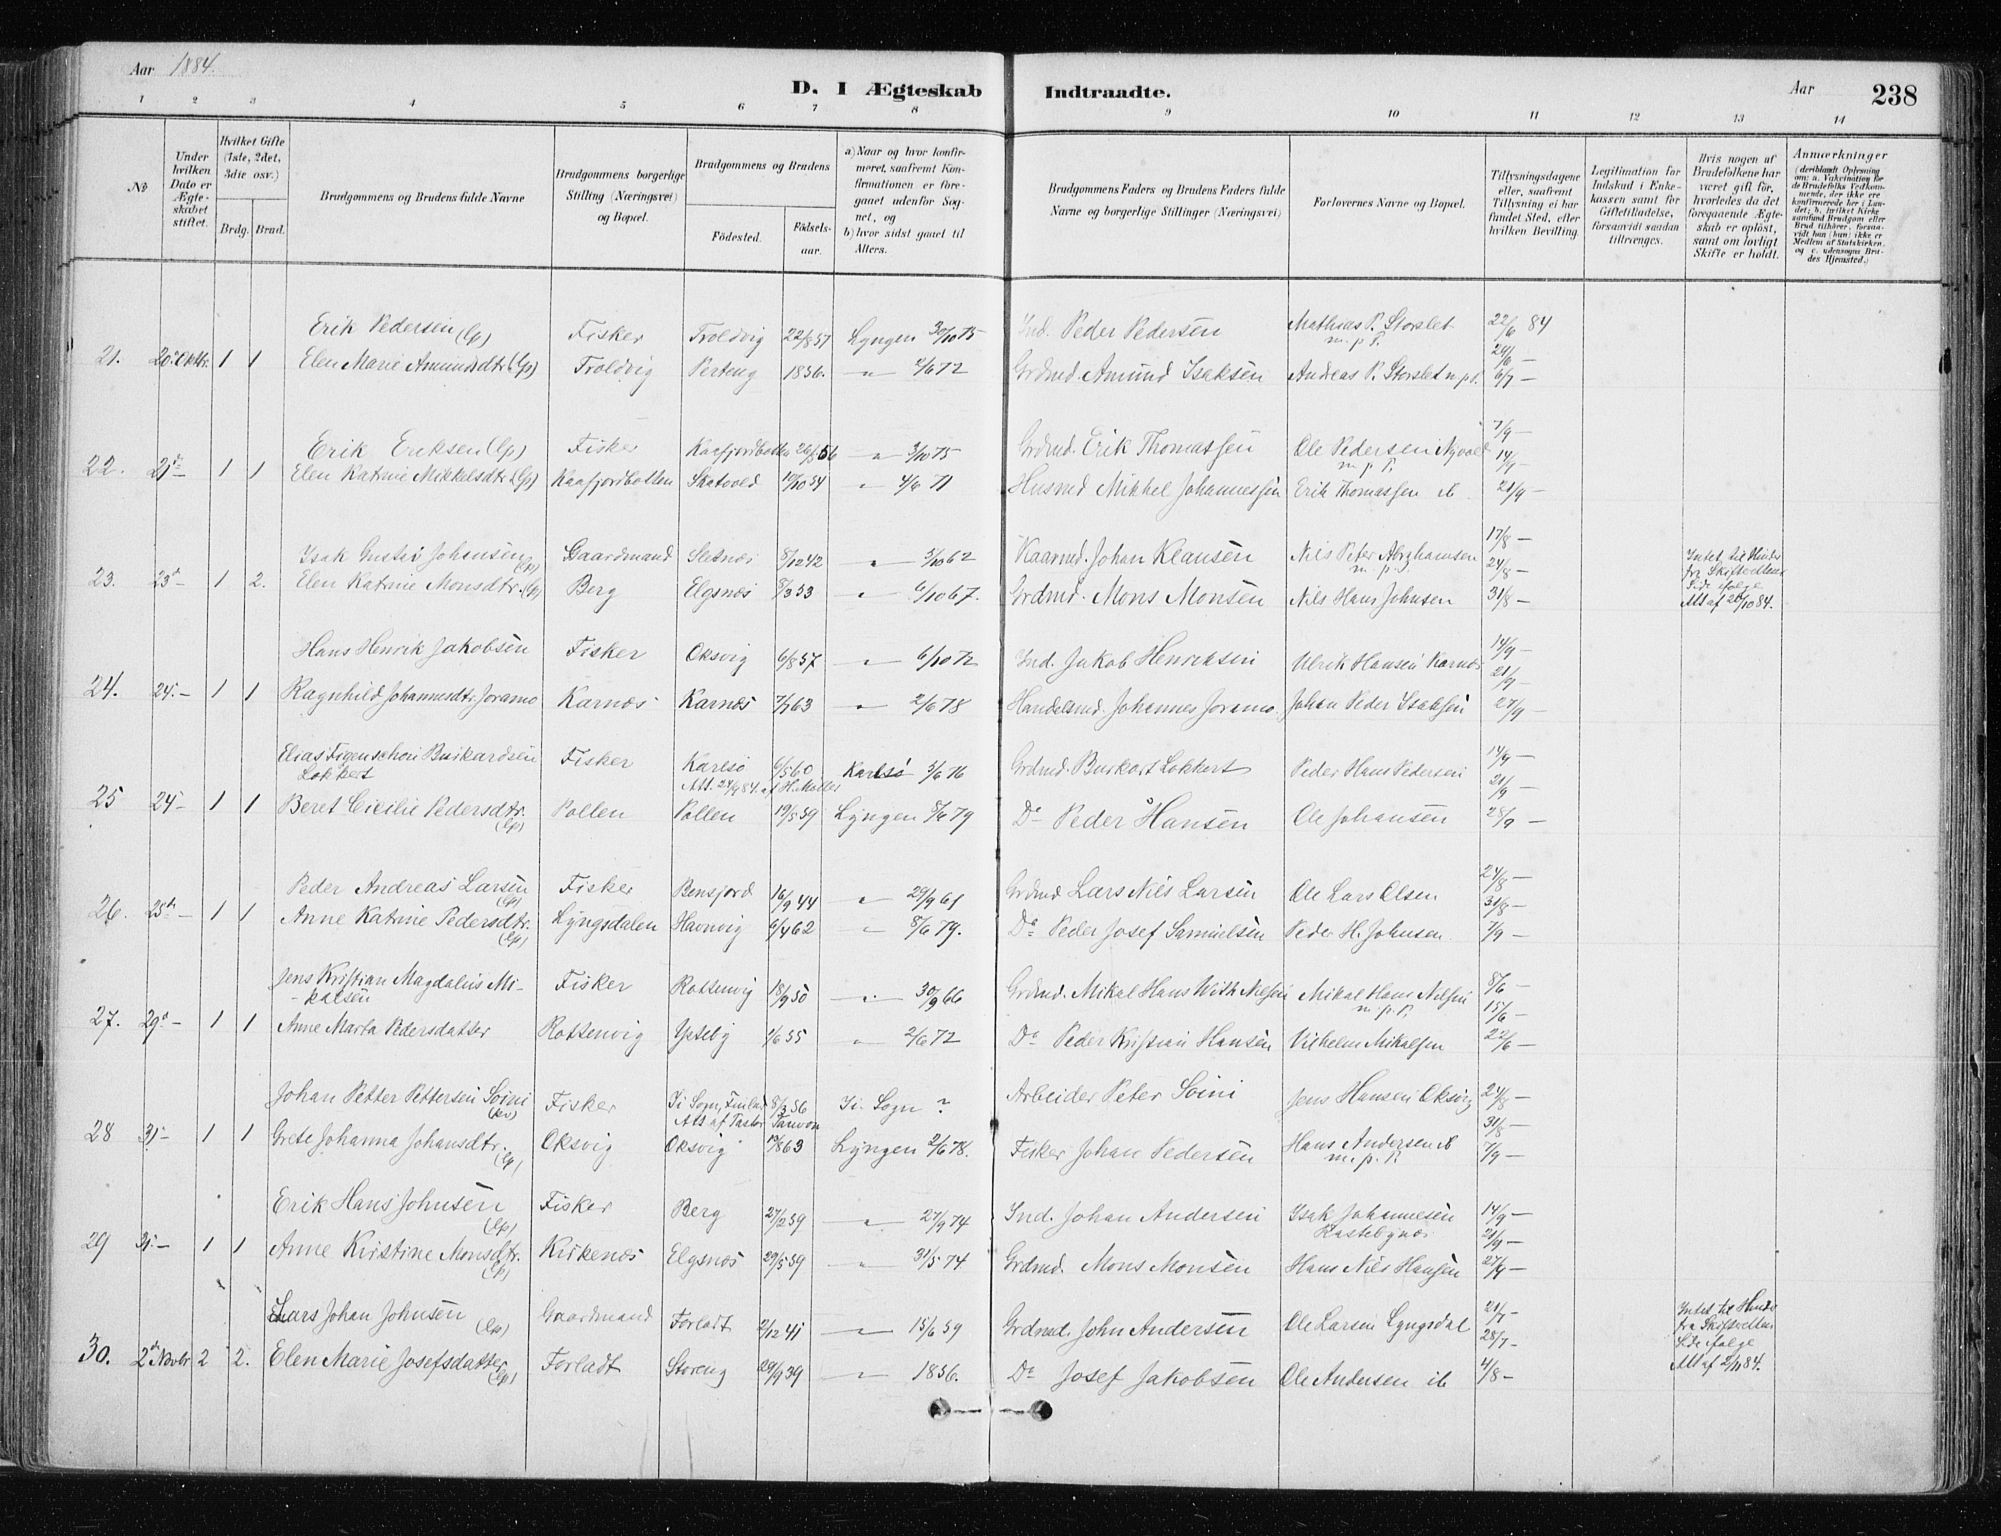 Aar 1884.
D. I Ægteskab Indtraadte.
Aar 238
1 2 3 4 5 6 7 8 9 10 11 12 13 14
No
Under hvilken Dato er Ægteskabet stiftet.
Hvilket Gifte (1ste, 2det, 3die osv.)
Brdg. Brud.
Brudgommens og Brudens fulde Navne
Brudgommens borgerlige Stilling (Næringsvei) og Bopæl.
Brudgommens og Brudens
Fødested. Fødselsaar.
a) Naar og hvor konfirmeret, saafremt Konfirmationen er foregaaet udenfor Sognet, og
b) hvor sidst gaaet til Alters.
Brudgommens Faders og Brudens Faders fulde Navne og borgerlige Stillinger (Næringsvei)
Forlovernes Navne og Bopæl.
Tillysningsdagene eller, saafremt Tillysning ei har fundet Sted, efter hvilken Bevilling.
Legitimation for Indskud i Enkekassen samt for Giftetilladelse, forsaavidt saadan tiltrænges.
Hvis nogen af Brudefolkene har været gift før, hvorledes da det foregaaende Ægteskab er opløst, samt om lovligt Skifte er holdt.
Anmærkninger (deriblandt Oplysning om: a. Vakcination for de Brudefolks Vedkommende, der ikke ere konfirmerede her i Landet; b. hvilket Kirkesamfund Brudgom eller Brud tilhører, forsaavidt han (hun) ikke er Medlem af Statskirken, og c. udensogns Brudes Hjemsted.)
Erik Pedersen (lp) Fisker Troldvig 22/8 57 Lyngen 30/10 75 Ind. Peder Pedersen Mathias P. Storslet m. p. P. 22/6 84
21. 20de Oktbr. 1 1 Elen Marie Amundsdtr (lp) Troldvig Perteng 1856. " 2/6 72 Grdmd. Amund Isaksen Andreas P. Storslet m. p. P. 29/6 — 6/7 —
Erik Eriksen (lp) Fisker Kaafjordbotten 26/8 56 " 3/10 75 Grdmd. Erik Thomassen Ole Pedersen m. p. P. 7/9 —
22. 21de 1 1 Elen Katrine Mikkelsdtr (lp) Kaafjordbotten Skatvold 10/10 54 " 4/6 71 Husmd Mikkel Johannessen Erik Thomassen ib. 14/9 — 21/9 —
Isak Gustav Johansen (lp) Gaardmand Sletnæs 8/12 42 " 5/10 62 Kaarmd. Johan Klausen Nils Peter Abrahamsen m. p. P. 17/8 — Intet til Hinder
23. 23d 1 2. Elen Katrine Monsdtr. (lp) Berg Elgsnæs 8/3 53 " 6/10 67. Grdmd. Mons Monsen Nils Hans Johnsen 24/8 — 31/8 — fra Skifteretten Side ifølge Att af 20/10 84.
Hans Henrik Jakobsen Fisker Oksvig 6/8 57 " 6/10 72 Ind. Jakob Henriksen Ulrik Hansen Karnæs 14/9 —
24. 24. — 1 1 Ragnhild Johannesdtr. Joramo Karnæs Karnæs 7/7 63 " 2/6 78 Handelsmd. Johannes Joramo. Johan Peder Isaksen 21/9 — 27/9 —
Elias Figenschou Burkardsen Lokkert Fisker Karlsø 6/5 60 Att. 24/9 84. af H. Møller Karlsø 5/6 76 Grdmd. Burkart Lokkert Peder Hans Pedersen 14/9 —
25 24 — 1 1 Beret Cicilie Pedersdtr. (lp) Pollen Pollen 19/5 59 Lyngen 8/6 79 Do Peder Hansen Ole Johansen 21/9 — 28/9 —
Peder Andreas Larsen (lp) Fisker Bensjord 16/9 44 " 29/9 61 Grdmd Lars Nils Larsen Ole Lars Olsen 24/8 —
26. 25de 1 1 Anne Katrine Pedersdtr. (lp) Lyngsdalen Havnvig 6/4 62 " 8/6 79. Do Peder Josef Samuelsen Peder H. Johnsen. 31/8 — 7/9 —
Jens Kristian Magdalus Mikalsen Fisker Rottenvig 18/9 50 " 30/9 66 Grdmd. Mikal Hans With Nilsen Mikal Hans Nilsen m. p. P. 8/6 —
27. 29d — 1 1 Anne Marta Pedersdatter Rottenvig Ysteby 1/6 55 " 2/6 72 Do Peder Kristian Hansen Vilhelm Mikalsen 15/6 — 22/6 —
Johan Petter Pettersen Soini Fisker Ii Sogn, Finland 8/3 56 Ii. Sogn ? Arbeider Peter Soini Jens Hansen Oksvig 24/8 —
28 31 — 1 1 Grete Johanna Johansdtr. (lp) Oksvig Oksvig 19/8 63 Lyngen 2/6 78. Fisker Johan Pedersen Hans Andersen ib m. p. P. 31/8 — 7/9 —
Erik Hans Johnsen (lp) Fisker Berg 27/2 59 " 27/9 74 Ind. Johan Andersen Isak Johannesen 14/9 —
29 31. — 1 1 Anne Kirstine Monsdtr. (lp) Kirkenæs Elgsnæs 29/5 59 " 31/5 74 Grdmd. Mons Monsen Hans Nils Hansen 21/9 — 27/9 —
Lars Johan Johnsen (lp) Gaardmand Forladt 2/12 41 " 15/6 59 Grdmd. John Andersen Ole Larsen Lyngsdal 21/7 — Intet til Hinder
30. 2den Novbr 2 2. Elen Marie Josefsdatter (lp) Forladt Storeng 29/9 39 " 1856. Do Josef Jakobsen Ole Andersen ib 28/7 — 4/8 — fra Skifteretten Side ifølge Att af 2/11 84.